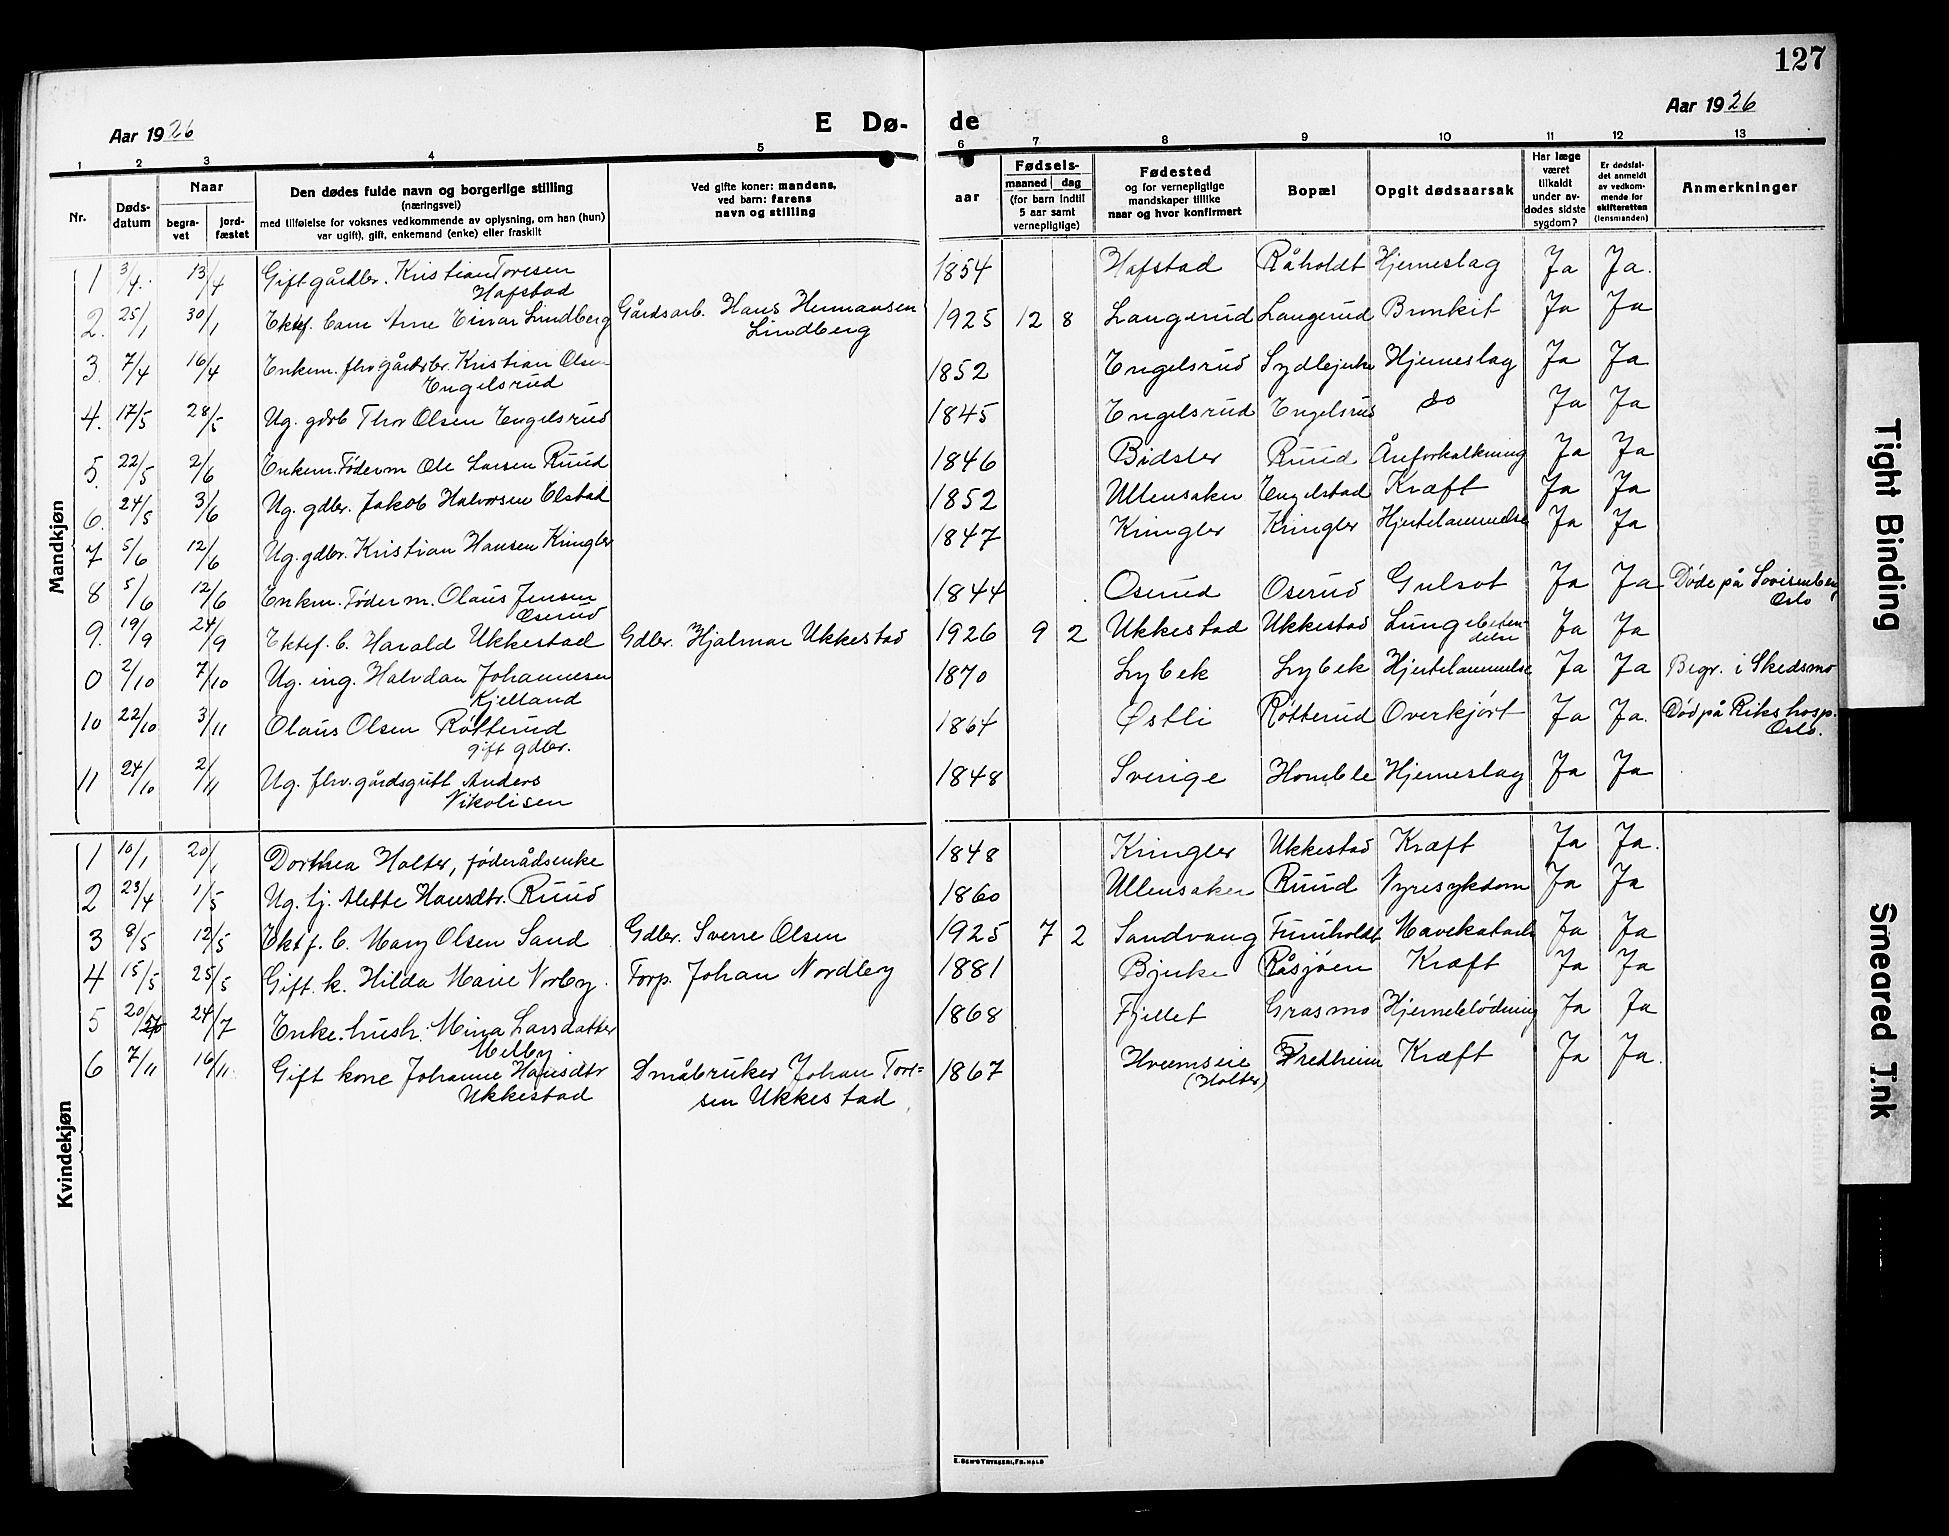 127
Aar 1926
E Dø-
de
Aar 1926
1 2 3 4 5 6 7 8 9 10 11 12 13
Nr.
Døds-
datum
Naar
begra-
vet
jord-
fæstet
Den dødes fulde navn og borgerlige stilling
(næringsvei)
med tilføielse for voksnes vedkommende av oplysning, om han (hun)
var ugift), gift, enkemand (enke) eller fraskilt
Ved gifte koner: mandens,
ved barn: farens
navn og stilling
aar
Fødsels-
maaned dag
(for barn indtil
5 aar samt
vernepligtige)
Fødested
og for vernepligtige
mandskaper tillike
naar og hvor konfirmert
Bopæl
Opgit dødsaarsak
Har læge
været
tilkaldt
under av-
dødes sidste
sygdom?
Er dødsfal-
det anmeldt
av vedkom-
mende for
skifteretten
(lensmanden)
Anmerkninger
Mandkjøn
1 3/4 13/4 Gift gårdbr. Kristian Toresen 1854 Hafstad Råholdt Hjerneslag Ja Ja.
Hafstad
2. 25/1 30/1 Ektef. barn Arne Einar Lindberg Gårdsarb. Hans Hermansen 1925 12 8 Langerud Langerud Bronkit Ja Ja
Lindberg
3. 7/4 16/4 Enkem. fhv gårdbr. Kristian Olsen 1852 Engelsrud Hjerneslag Ja Ja
Engelsrud
4. 17/5 28/5 Ug. gdrb Thor Olsen Engelsrud 1845 Engelsrud Engelsrud do Ja Ja
5. 22/5 2/6 Enkem. Føderm Ole Larsen Ruud 1846 Bidsler Ruud Åreforkalkning Ja Ja
6. 24/5 3/6 Ug. gdbr. Jakob Halvorsen Elstad 1852 Ullensaker Engelstad Kræft Ja Ja
7 5/6 12/6 Ug. gdbr. Kristian Hansen Kringler 1847 Kringler Kringler Hjertelammelse Ja Ja
8 5/6 12/6 Enkem. Føderm. Olaus Jensen 1844 Oserud Oserud Gulsot Ja Ja Døde på Lovisenberg
Oserud Oslo
9. 19/9 24/9 Ektef. b. Harald Ukkestad Gdbr. Hjalmar Ukkestad 1926 9 2 Ukkestad Ukkestad Lungebeten-
delse Ja Ja
0 2/10 7/10 Ug. ing. Halvdan Johannesen 1870 Lybek Lybek Hjertelammelse Ja Ja Begr. i Skedsmo
Kjelland
10 22/10 3/11 Olaus Olsen Røtterud 1864 Østli Røtterud Overkjørt Ja Ja. Død på Rikshosp.
gift gdbr. Oslo.
11 24/10 2/11 Ug. fhv. gårdsgutt Anders 1848 Sverige Homble Hjerneslag Ja Ja
Nikolisen
Kvindekjøn
1 10/1 20/1 Dorthea Holter, føderådsenke 1848 Kringler Ukkestad Kræft Ja Ja.
2 23/4 1/5 Ug. tj. Alette Hansdtr. Ruud 1860 Ullensaker Ruud Nyresykdom Ja Ja
3 8/5 12/5 Ektf. b. Mary Olsen Sand Gdbr. Sverre Olsen 1925 7 2 Sandvang Furuholdt Mavekatarh Ja Ja
4 15/5 25/5 Gift. k. Hilda Marie Norby. Torp. Johan Nordby 1881 Bjerke Råsjøen Kræft Ja Ja
5 20/ 24/7 Enke. hush. Mina Larsdatter 1868 Fjellet Grasmo Hjerneblødning Ja Ja
Melby
6 7/11 16/11 Gift kone Johanne Hansdtr Småbruker Johan Tore- 1867 Hvemseie Fredheim Kræft Ja Ja.
Ukkestad sen Ukkestad (Holter)
E. SEM'S TRYKKERI, FR.HALD
Tight Binding
Smeared Ink